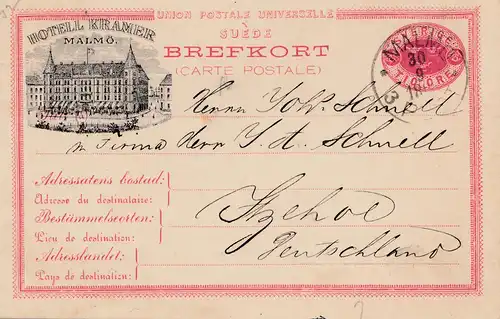 UNION POSTALE UNIVERSELLE
SUÈDE
BREFKORT
(CARTE POSTALE)
HOTELL KRAMER
MALMÖ.
SVERIGE
MALMÖ
30
Herrn Joh. Schnell
in Firma Herrn J. A. Schnell
Adressatens bostad:
Adresse du destinataire:
Bestämmelseorten:
Lieu de destination:
Adresslandet:
Pays de destination:
Itzehoe
Deutschland